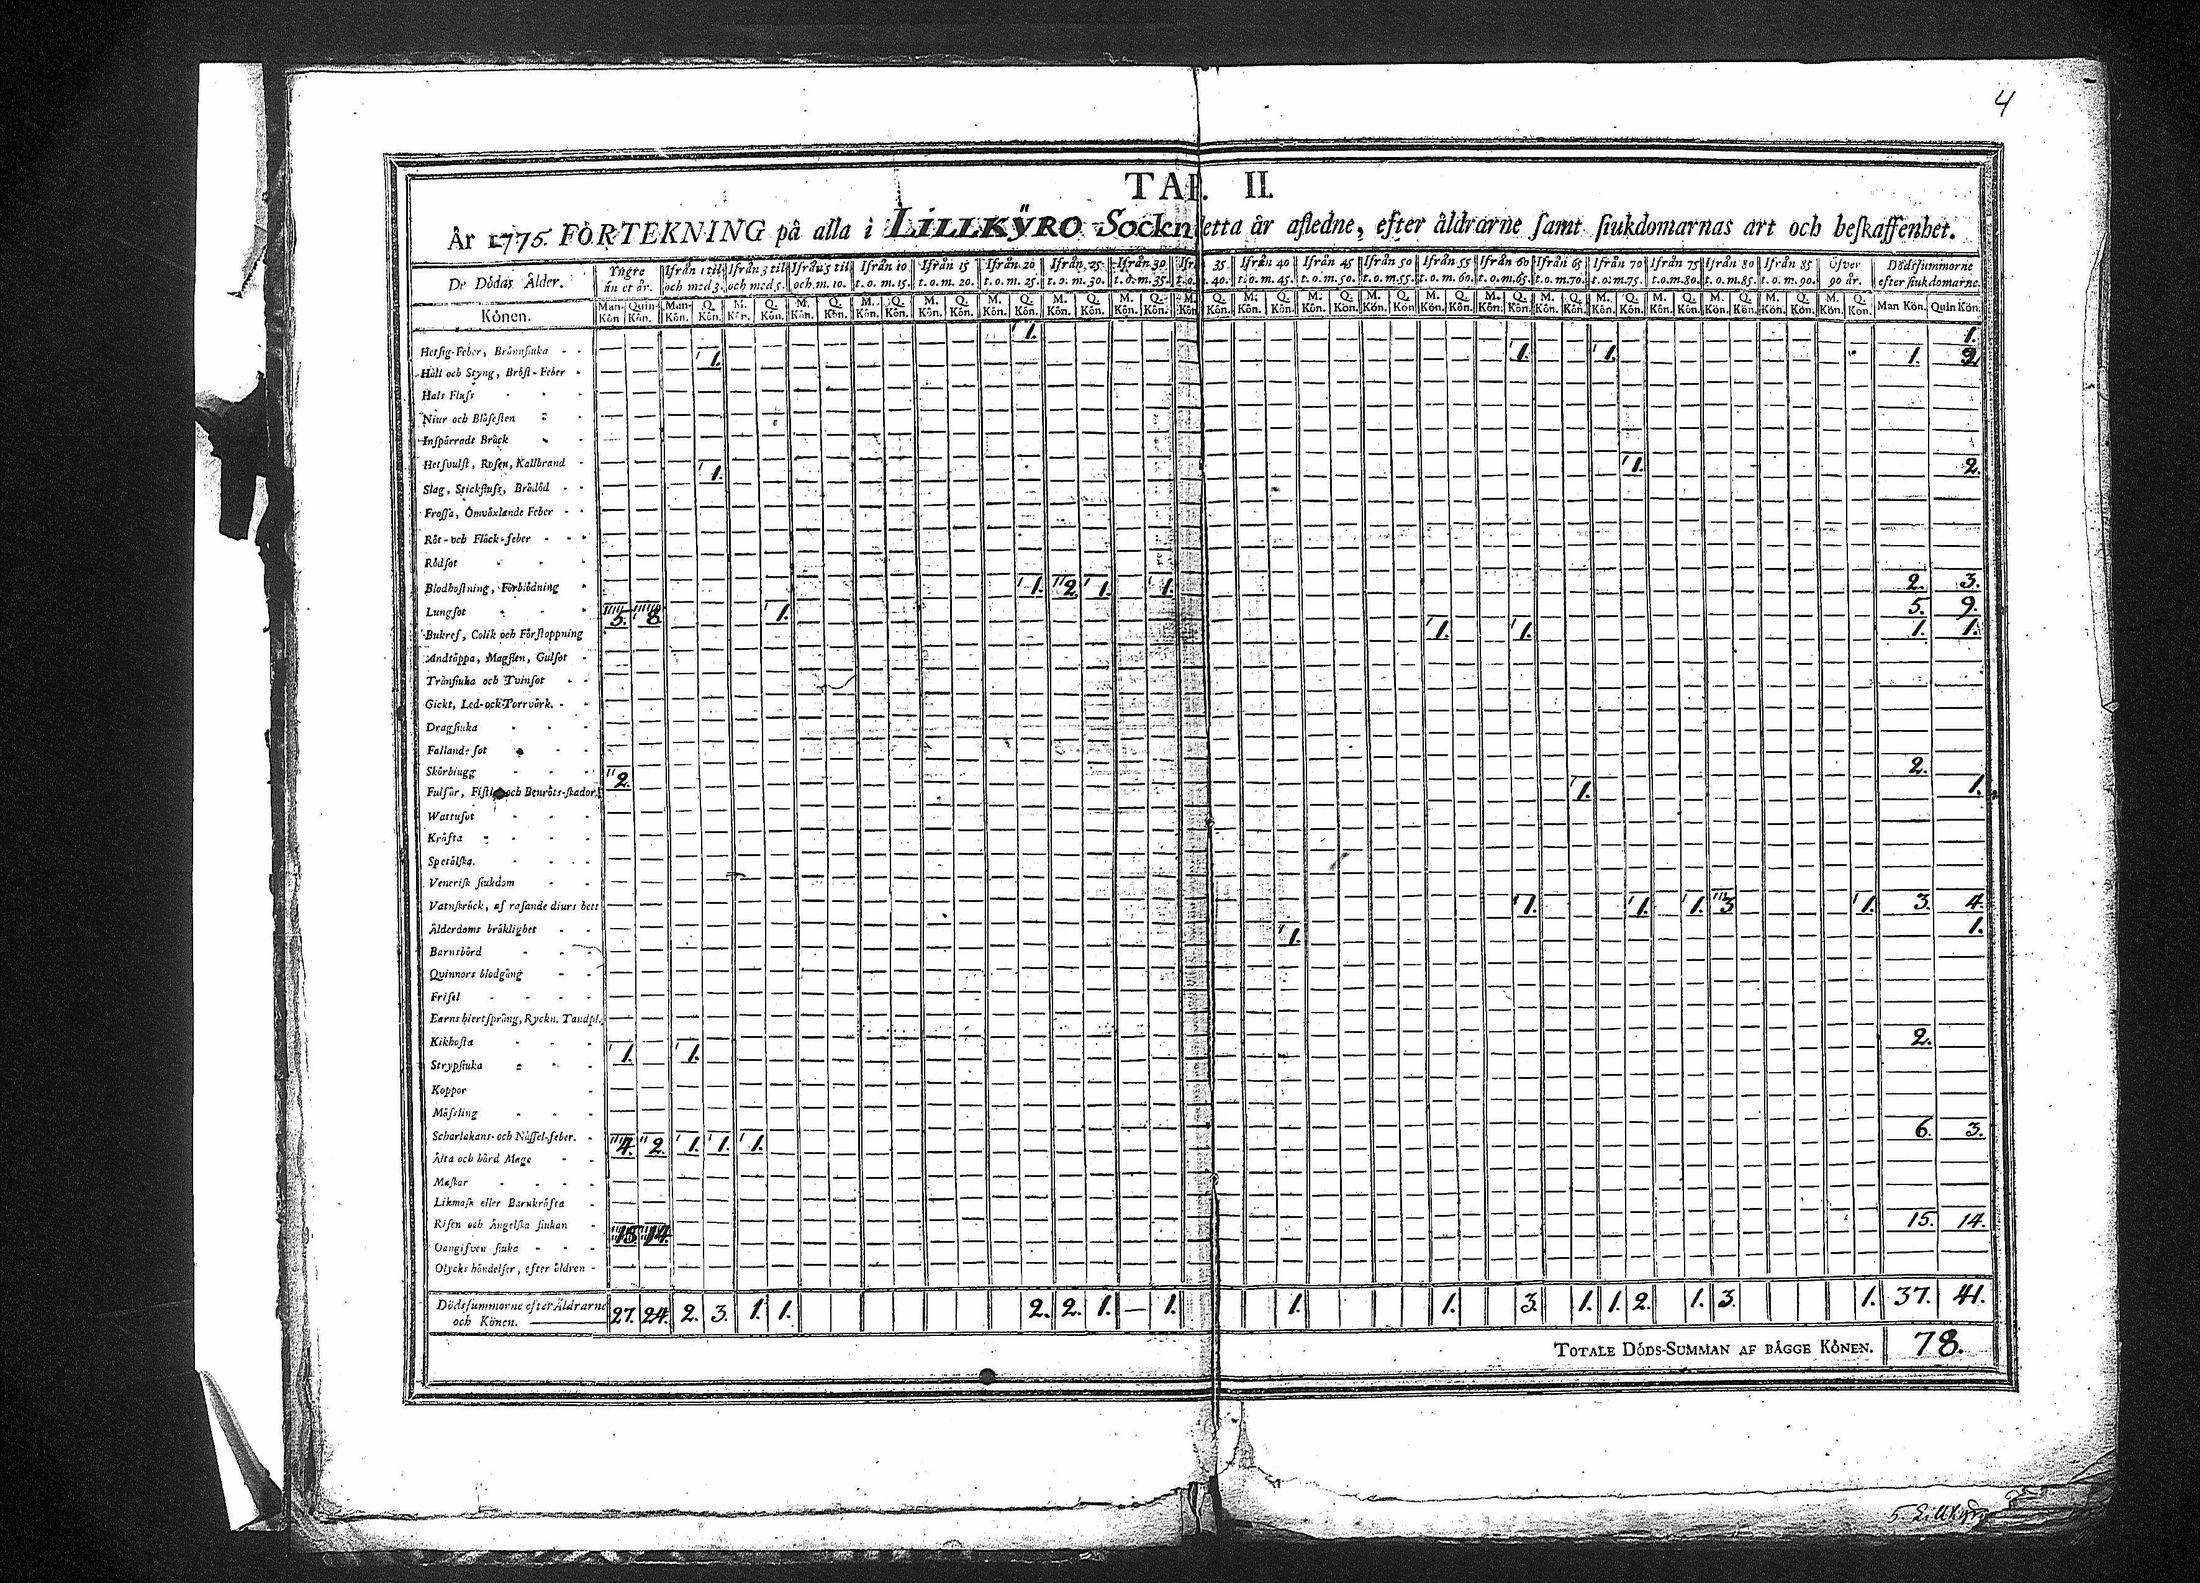 4
TAB. II.
År 1775. FÖRTEKNING på alla i LILLKŸRO Sockn detta år afledne, efter åldrarne samt siukdomarnas art och beskaffenhet.
De Dödas Ålder. Yngre än et år. Ifrån 1 til och med 3. Ifrån 3 til och med 5. Ifrån 5 til och m. 10. Ifrån 10 t. o. m. 15. Ifrån 15 t. o. m. 20. Ifrån 20 t. o. m. 25. Ifrån 25 t. o. m. 30. Ifrån 30 t. o. m. 35. Ifrån 35 t. o. m. 40. Ifrån 40 t. o. m. 45. Ifrån 45 t. o. m. 50. Ifrån 50 t. o. m. 55. Ifrån 55 t. o. m. 60. Ifrån 60 t. o. m. 65. Ifrån 65 t. o. m. 70. Ifrån 70 t. o. m. 75. Ifrån 75 t. o. m. 80. Ifrån 80 t. o. m. 85. Ifrån 85 t. o. m. 90. Öfver 90 år. Dödssummorne efter siukdomarne.
Könen. Man Kön. Quin-Kön. Man Kön. Q. Kön. M. Kön. Q. Kön. M. Kön. Q. Kön. M. Kön. Q. Kön. M. Kön. Q. Kön. M. Kön. Q. Kön. M. Kön. Q. Kön. M. Kön. Q. Kön. M. Kön. Q. Kön. M. Kön. Q. Kön. M. Kön. Q. Kön. M. Kön. Q. Kön. M. Kön. Q. Kön. M. Kön. Q. Kön. M. Kön. Q. Kön. M. Kön. Q. Kön. M. Kön. Q. Kön. M. Kön. Q. Kön. M. Kön. Q. Kön. Man Kön. Quin Kön.
Hetsig-Feber, Brännsiuka 1. 1.
Håll och Styng, Bröst-Feber 1. 1. 1. 1. 2.
Hals Fluss
Niur och Blåsesten
Inspärrade Bråck
Hetsvulst, Rosen, Kallbrand
Slag, Stickfluss, Brådöd 1. 1. 2.
Frossa, Omväxlande Feber
Röt- och Fläck-feber
Rödsot
Blodhostning, Förblödning
Lungsot 1. 2. 1. 1. 2. 3.
Bukref, Colik och Förstoppning 5. 8. 1. 5. 9.
Andtäppa, Magsten, Gulsot 1. 1. 1. 1.
Trånsiuka och Tvinsot
Gickt, Led- och Torrvärk.
Dragsiuka
Fallande sot
Skörbiugg
Fulsår, Fistlar och Benröts-skador. 2. 2.
Wattusot 1. 1.
Kräfta
Spetälska.
Venerisk siukdom
Vatnskräck, af rasande diurs bett
Ålderdoms bräklighet 1. 1. 1. 3. 1. 3. 4.
Barnsbörd 1. 1.
Qvinnors blodgång
Frisel
Barns hiertsprång, Ryckn. Tandpl.
Kikhosta
Strypsiuka 1. 1. 2.
Koppor
Mässling
Scharlakans- och Nässel-feber.
Älta och hård Mage 4. 2. 1. 1. 1. 6. 3.
Maskar
Likmask eller Barnkräfta
Risen och Ängelska siukan
Oangifven siuka 15 14. 15. 14.
Olycks händelser, efter åldren
Dödssummorne efter Åldrarne
och Könen. 27. 24. 2. 3. 1. 1. 2. 2. 1. — 1. 1. 1. 3. 1. 1. 2. 1. 3. 1. 37. 41.
TOTALE DÖDS-SUMMAN AF BÅGGE KÖNEN. 78.
5 Lillkyro